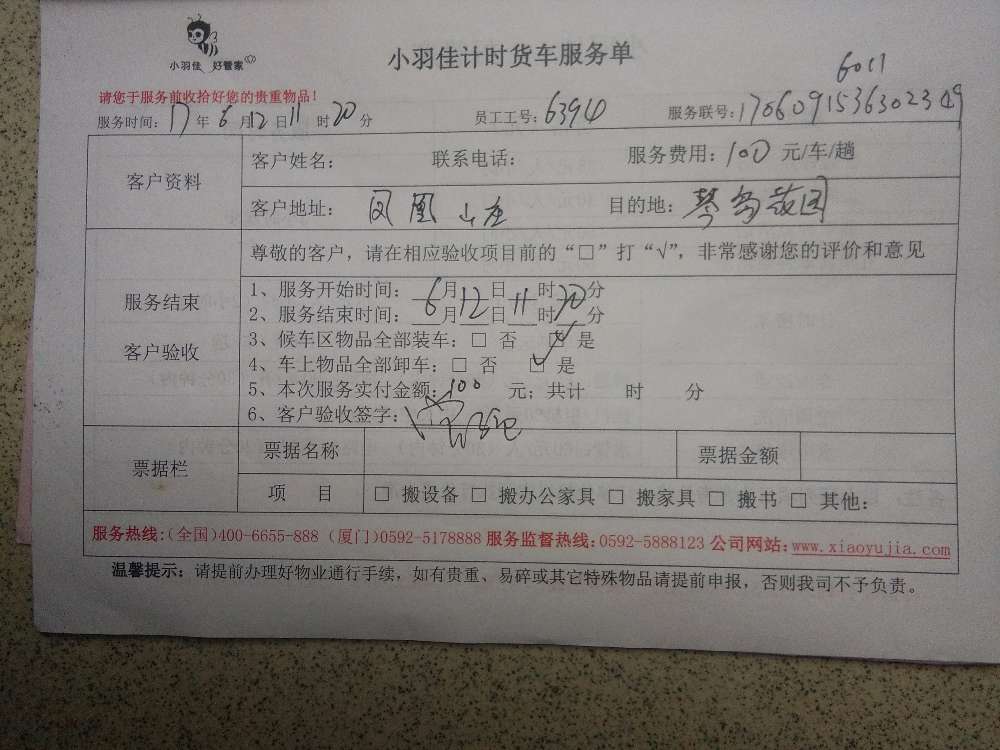 小羽佳 好管家
小羽佳计时货车服务单
6011
请您于服务前收拾好您的贵重物品!
服务时间:17年6月12日11时20分 员工工号:6394 服务联号:1706091536302349
客户资料
客户姓名: 联系电话: 服务费用:100元/车/趟
客户地址:凤凰山庄 目的地:琴岛
服务结束
客户验收
尊敬的客户,请在相应验收项目前的“□”打“√”,非常感谢您的评价和意见
1、服务开始时间:6月12日11时20分
2、服务结束时间:__月__日__时__分
3、候车区物品全部装车:□ 否 □ 是
4、车上物品全部卸车:□ 否 □ 是
5、本次服务实付金额:100 元;共计 时 分
6、客户验收签字:
票据栏
票据名称 票据金额
项 目 □ 搬设备 □ 搬办公家具 □ 搬家具 □ 搬书 □ 其他:
服务热线:(全国)400-6655-888 (厦门)0592-5178888 服务监督热线:0592-5888123 公司网站:www.xiaoyujia.com
温馨提示:请提前办理好物业通行手续,如有贵重、易碎或其它特殊物品请提前申报,否则我司不予负责。